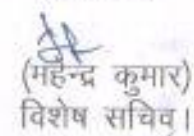 (महेन्द्र कुमार)
विशेष सचिव।